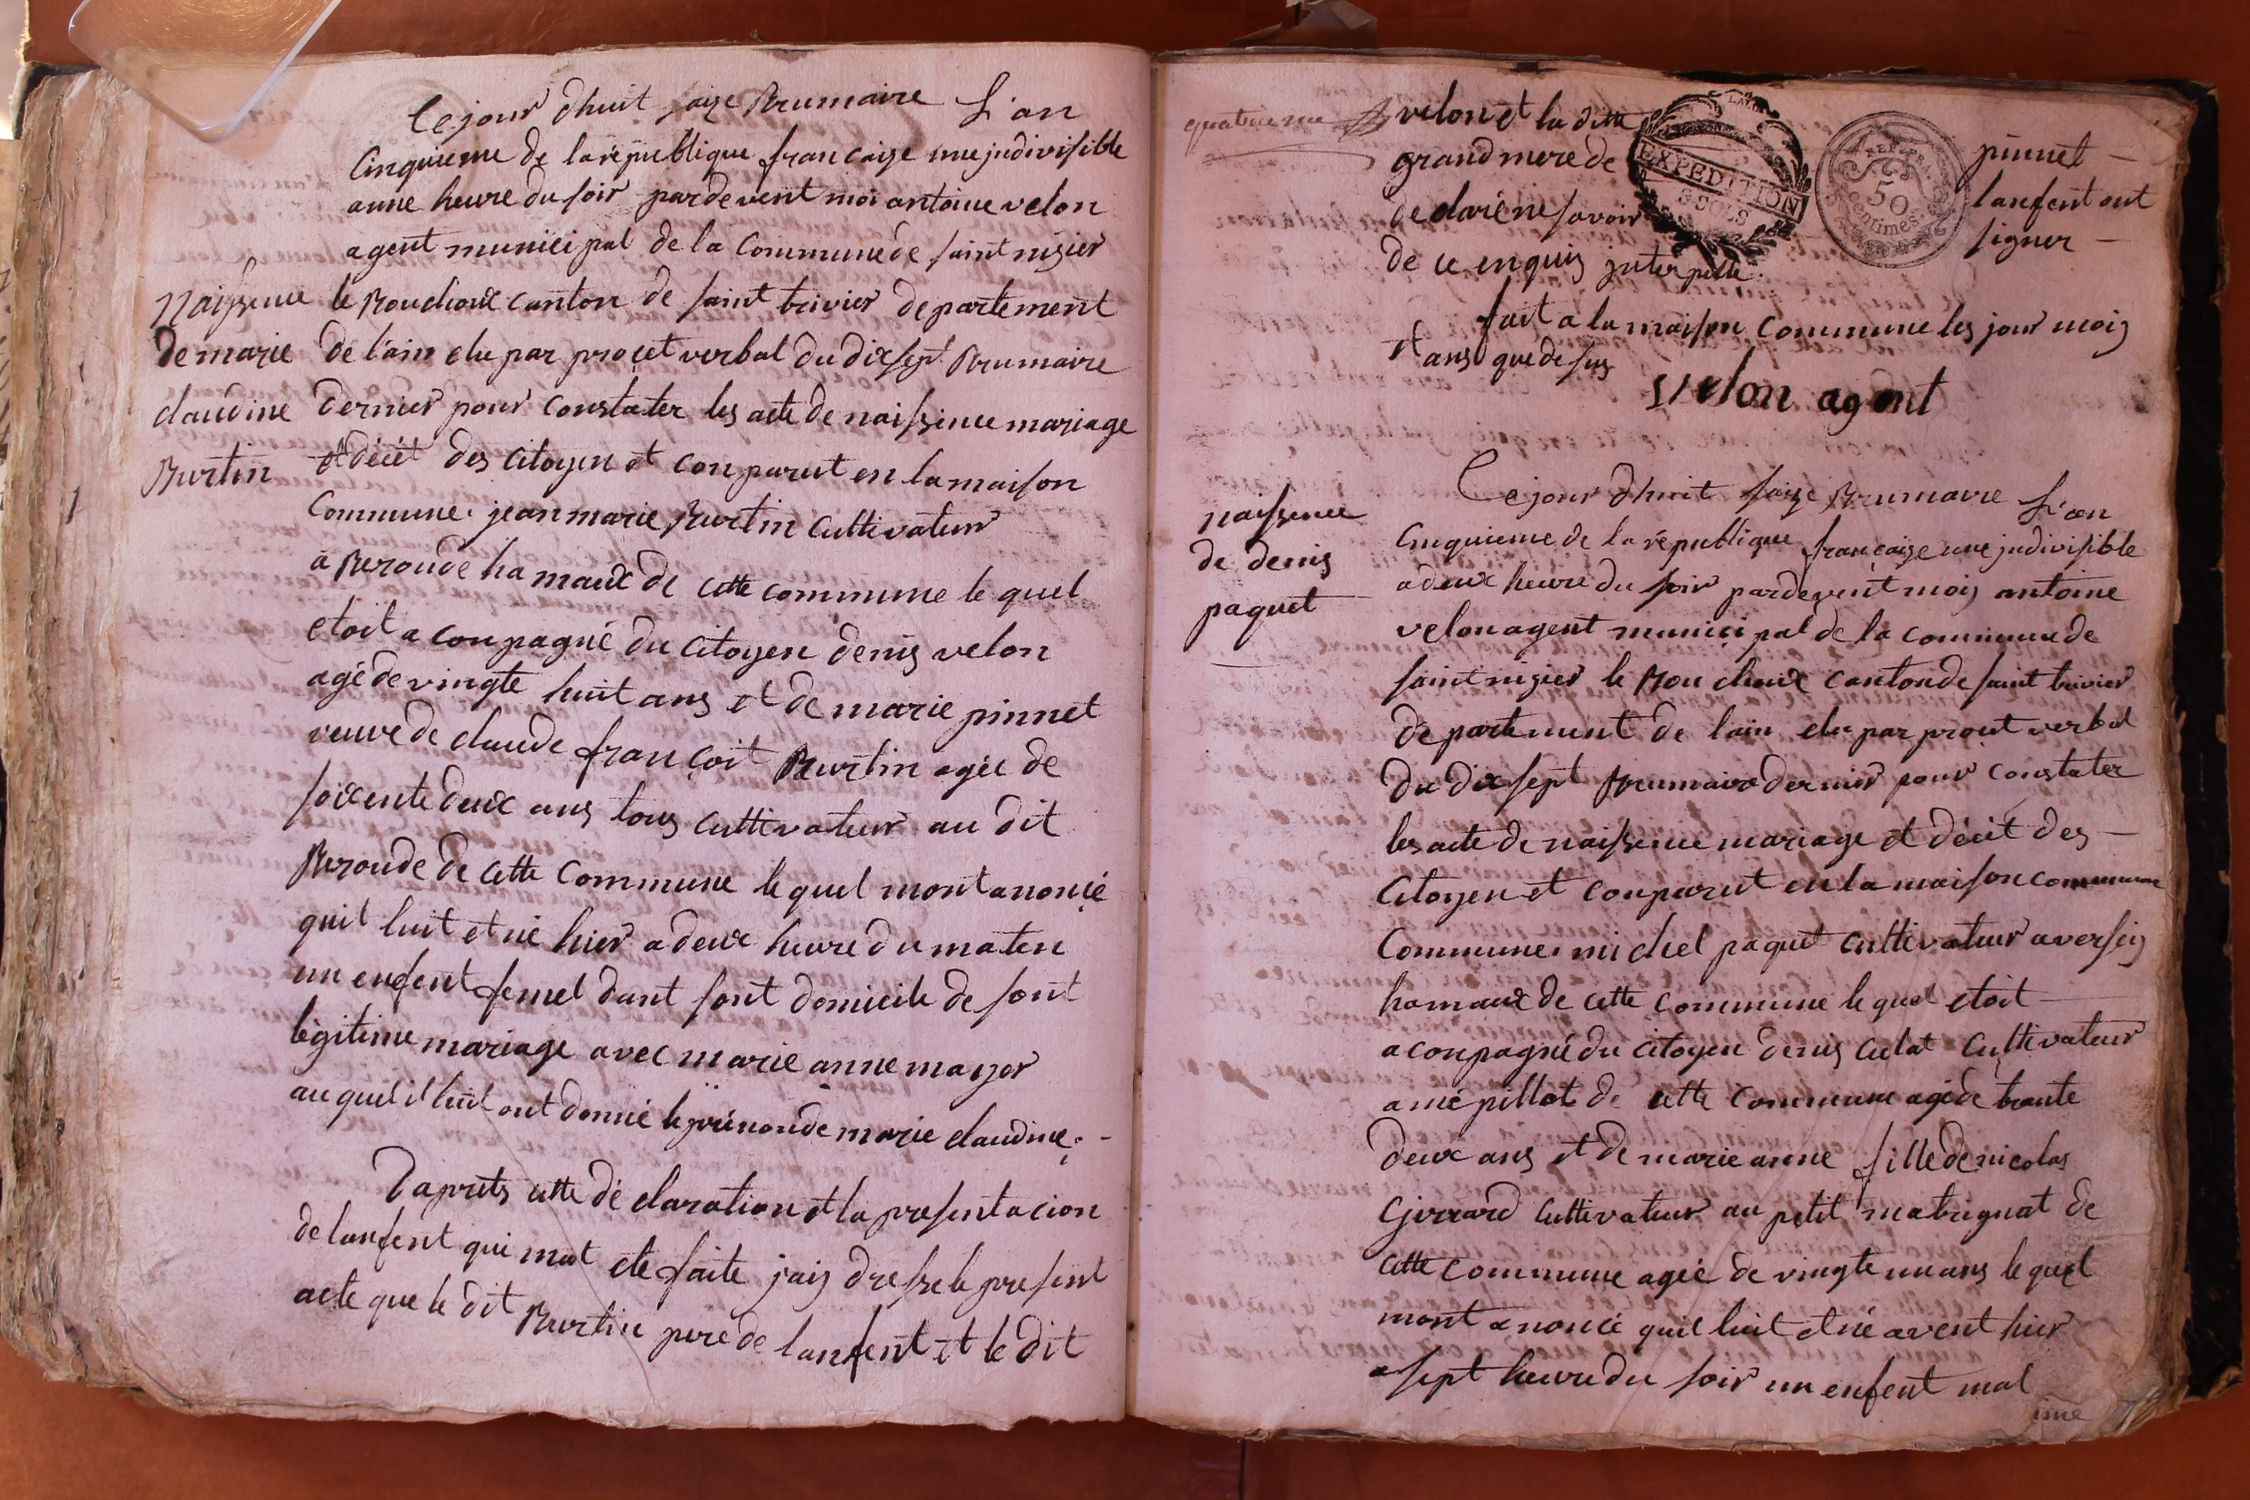 Ce jour dhuit saize Brumaire L'an
Cinquieme de la republique francaize une judivisible
anne heure du soir pardevent moi antoine velon
agent municipal de la Commune de saint nizier
le Bouchoux canton de saint trivier departement
de l'ain elu par procet verbal du dixsept Brumaire
dernier pour constater les acte de naissence mariage
et décét des citoyen et conparut en la maison
Commune. jean marie Burtin Cultivateur
a Beroude hamaux de cette commune le quel
etoit a conpagné du citoyen denis velon
agé de vingte huit ans et de marie pinnet
veuve de claude françoit Burtin agée de
soixente deux ans tous cultivateur au dit
Beroude de cette Commune le quel mont anoncé
quil luit et né hier a deux heure du maten
un enfent femel dant sont domicile de sont
legitime mariage avec marie anne mayor
au quel il luit ont donné le prénon de marie claudine.
Daprets cette dé claration et la presentacion
de lanfent qui mat ete faite jais dresse le present
acte que le dit Burtin pere de lanfent et le dit
Naissence
de marie
claudine
Burtin
quatrieme
velon et la ditte pinnet
grand mere de lanfent ont
declaré ne savoir signer
de ce enquis interpelle.
fait a la maison Commune les jour mois
et ans que desus
Velon agent
EXPEDITION
3 SOLS
REP. FRA.
50
centimes
naissence
de denis
paquet
Ce jour dhuit saize Brumaire L'an
Cinquieme de la republique francaize une judivisible
a deux heure du soir pardevent mois antoine
velon agent municipal de la commune de
saint nizier le Bouchoux canton de saint trivier
departement de lain elu par procet verbal
du dix sept Brumaire dernier pour constater
les acte de naissence mariage et décét des
Citoyen et conparut en la maison commune
Commune. michel paquet cultivateur a versey
hamaux de cette commune le quel etoit
a conpagné du citoyen denis Culat Cultivateur
a mépillat de cette commune agé de trante
deux ans et de marie anne fille de nicolas
Girrard Cultivateur au petit matrignat de
cette commune agée de vingte un ans le quel
mont anoncé quil luit et né avent hier
a sept heure du soir un enfent mal